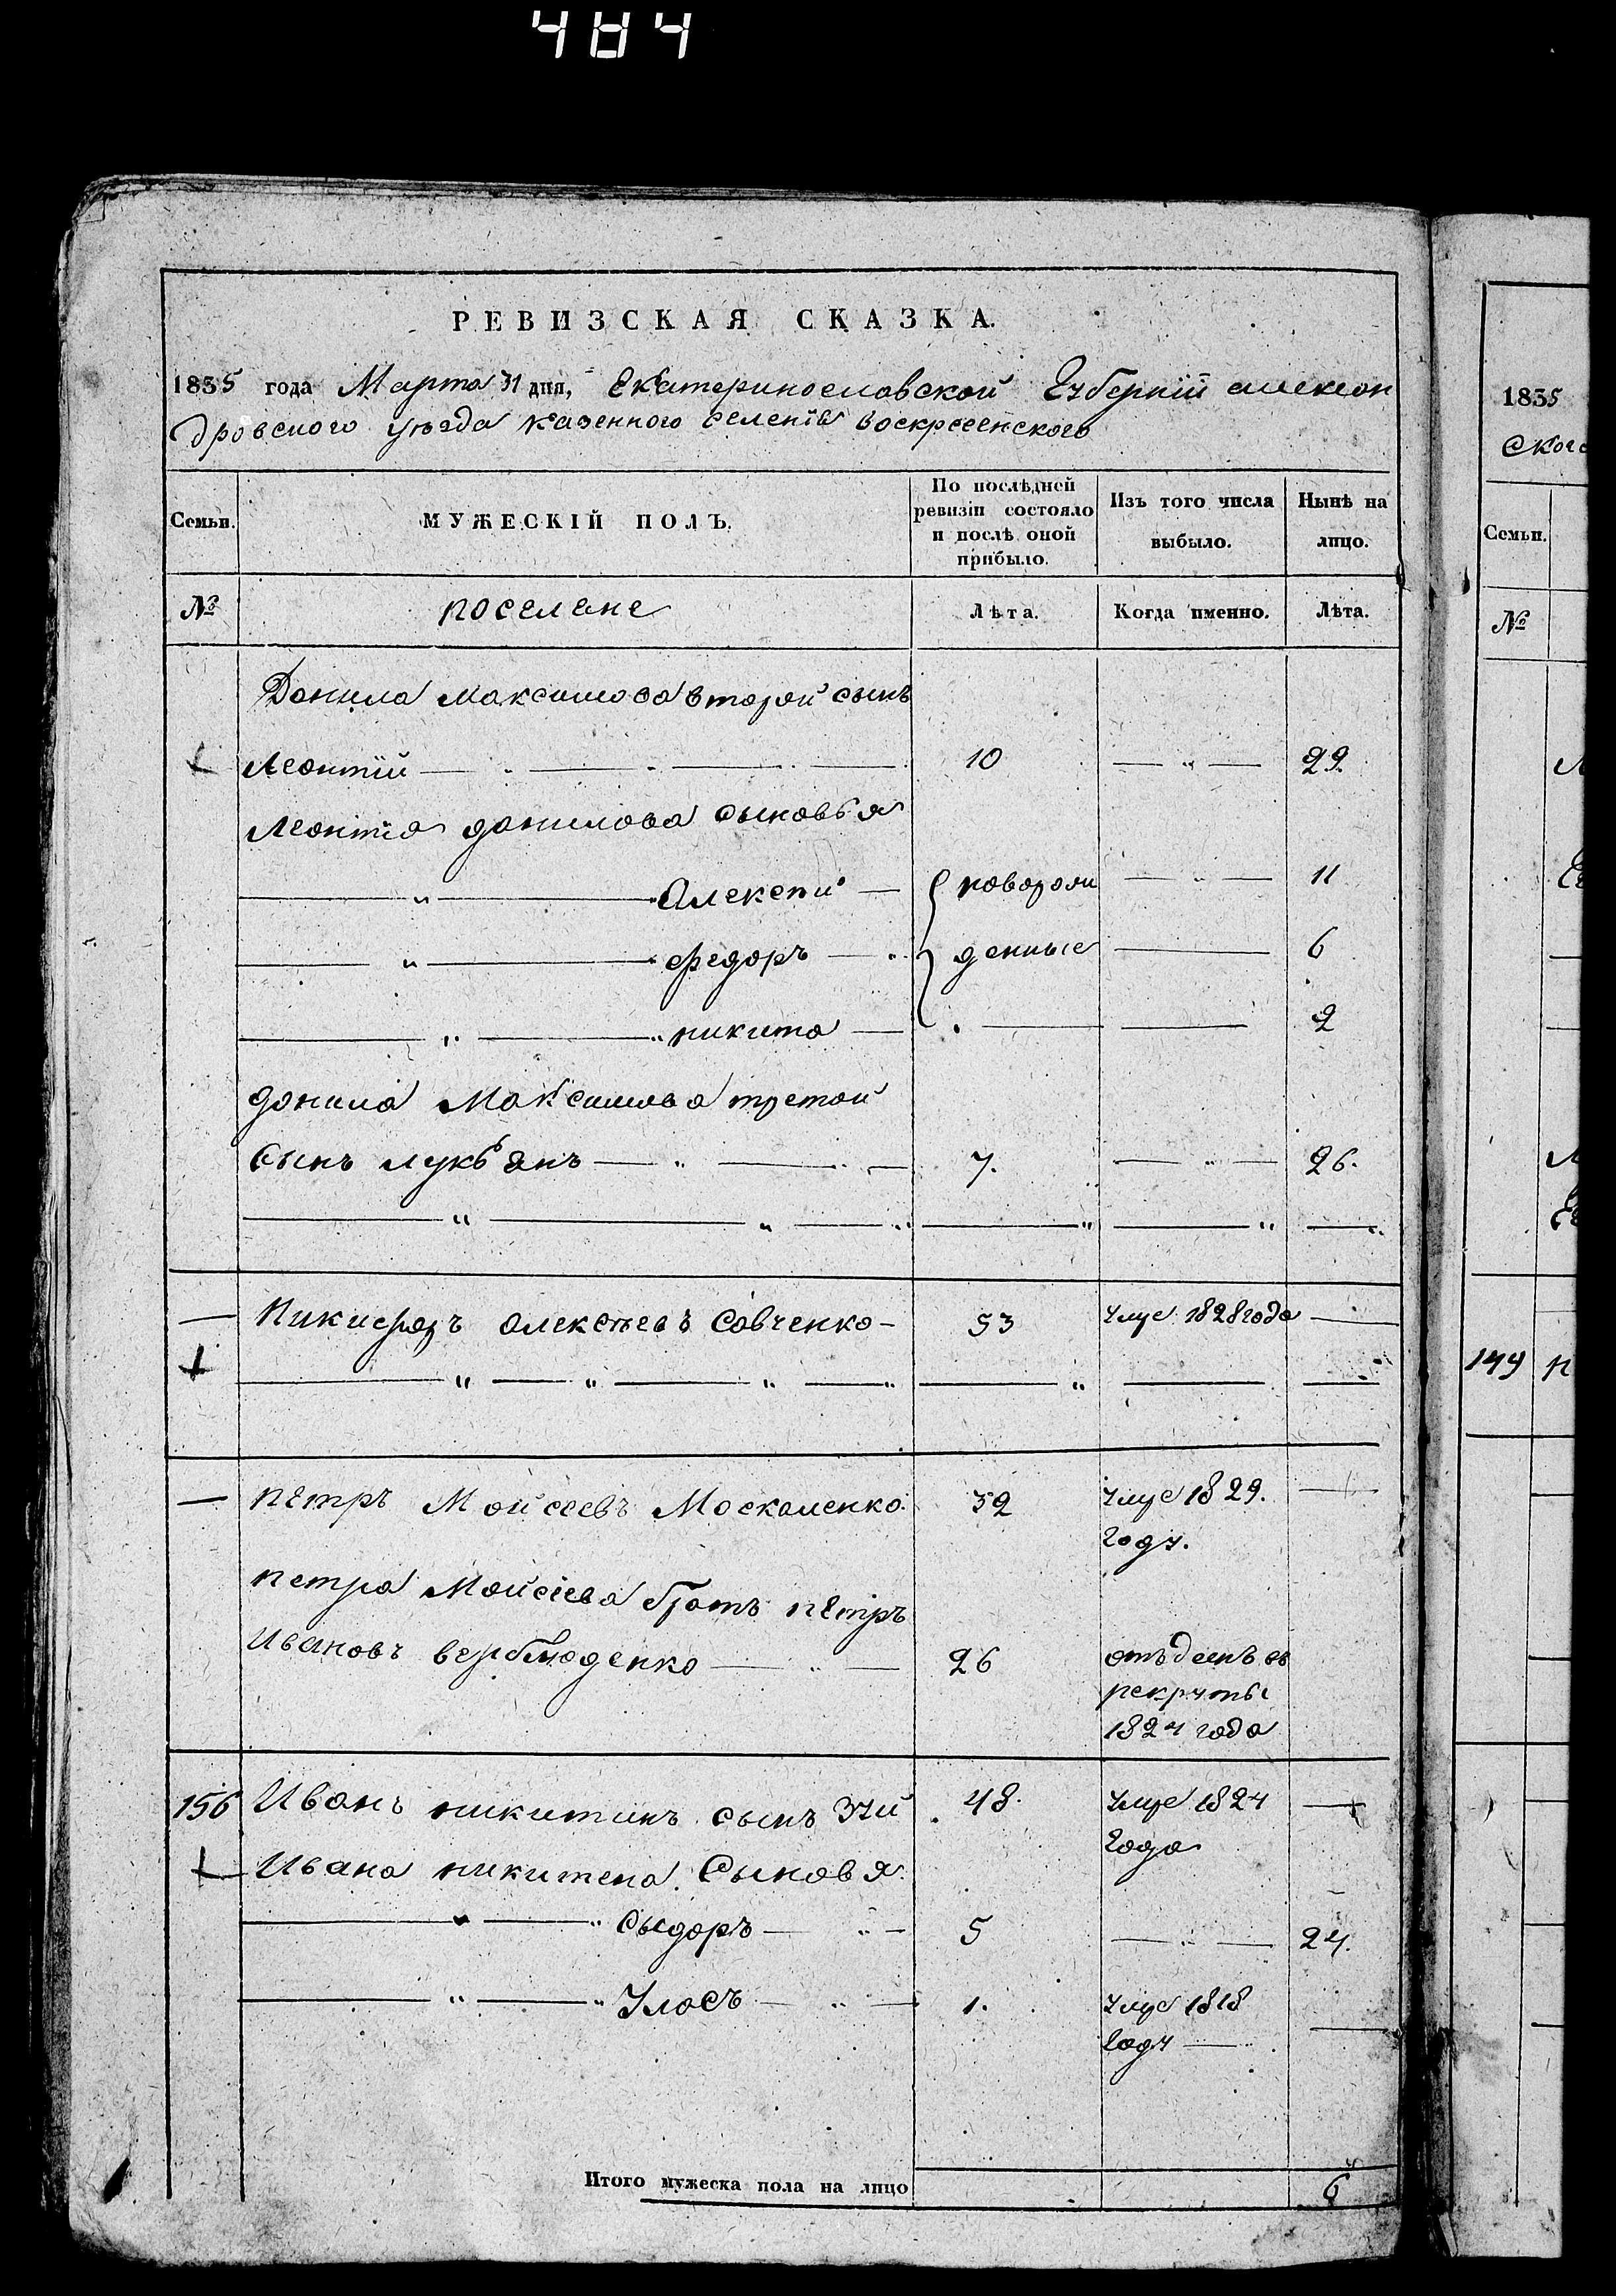 484
РЕВИЗСКАЯ СКАЗКА.
1835 года Марта 31 дня, Екатеринославской Губернїй алексан
дровского уѣзда казенного селенїя воскресенского
1835
ского
Семьи. МУЖЕСКІЙ ПОЛЪ. По послѣдней ревизіи состояло и послѣ оной прибыло. Изъ того числа выбыло. Нынѣ на лицо.
Семьи.
№ поселяне Лѣта. Когда именно. Лѣта.
№
Данила максимова второй сынъ
Леонтїй 10 29.
Леонтїя данилова сыновья
Алексей новорож 11
федоръ денные 6
никита 2
данила Максимова третой
сынъ лукьянъ 7. 26.
Никифоръ алексѣевъ Савченко 53 Умре 1828 года
144 п
петръ Мойсеевъ Москаленко. 32 Умре 1829.
году.
петра Мойсіева братъ петръ
Ивановъ верблюденко 26 отъданъ въ
рекруты
1824 года
156 Иванъ никитинъ сынъ Зуй 48. Умре 1824
года
Ивана никитена Сыновя.
Сыдоръ 5 24.
Уласъ 1. Умре 1818
году
Итого мужеска пола на лицо 6